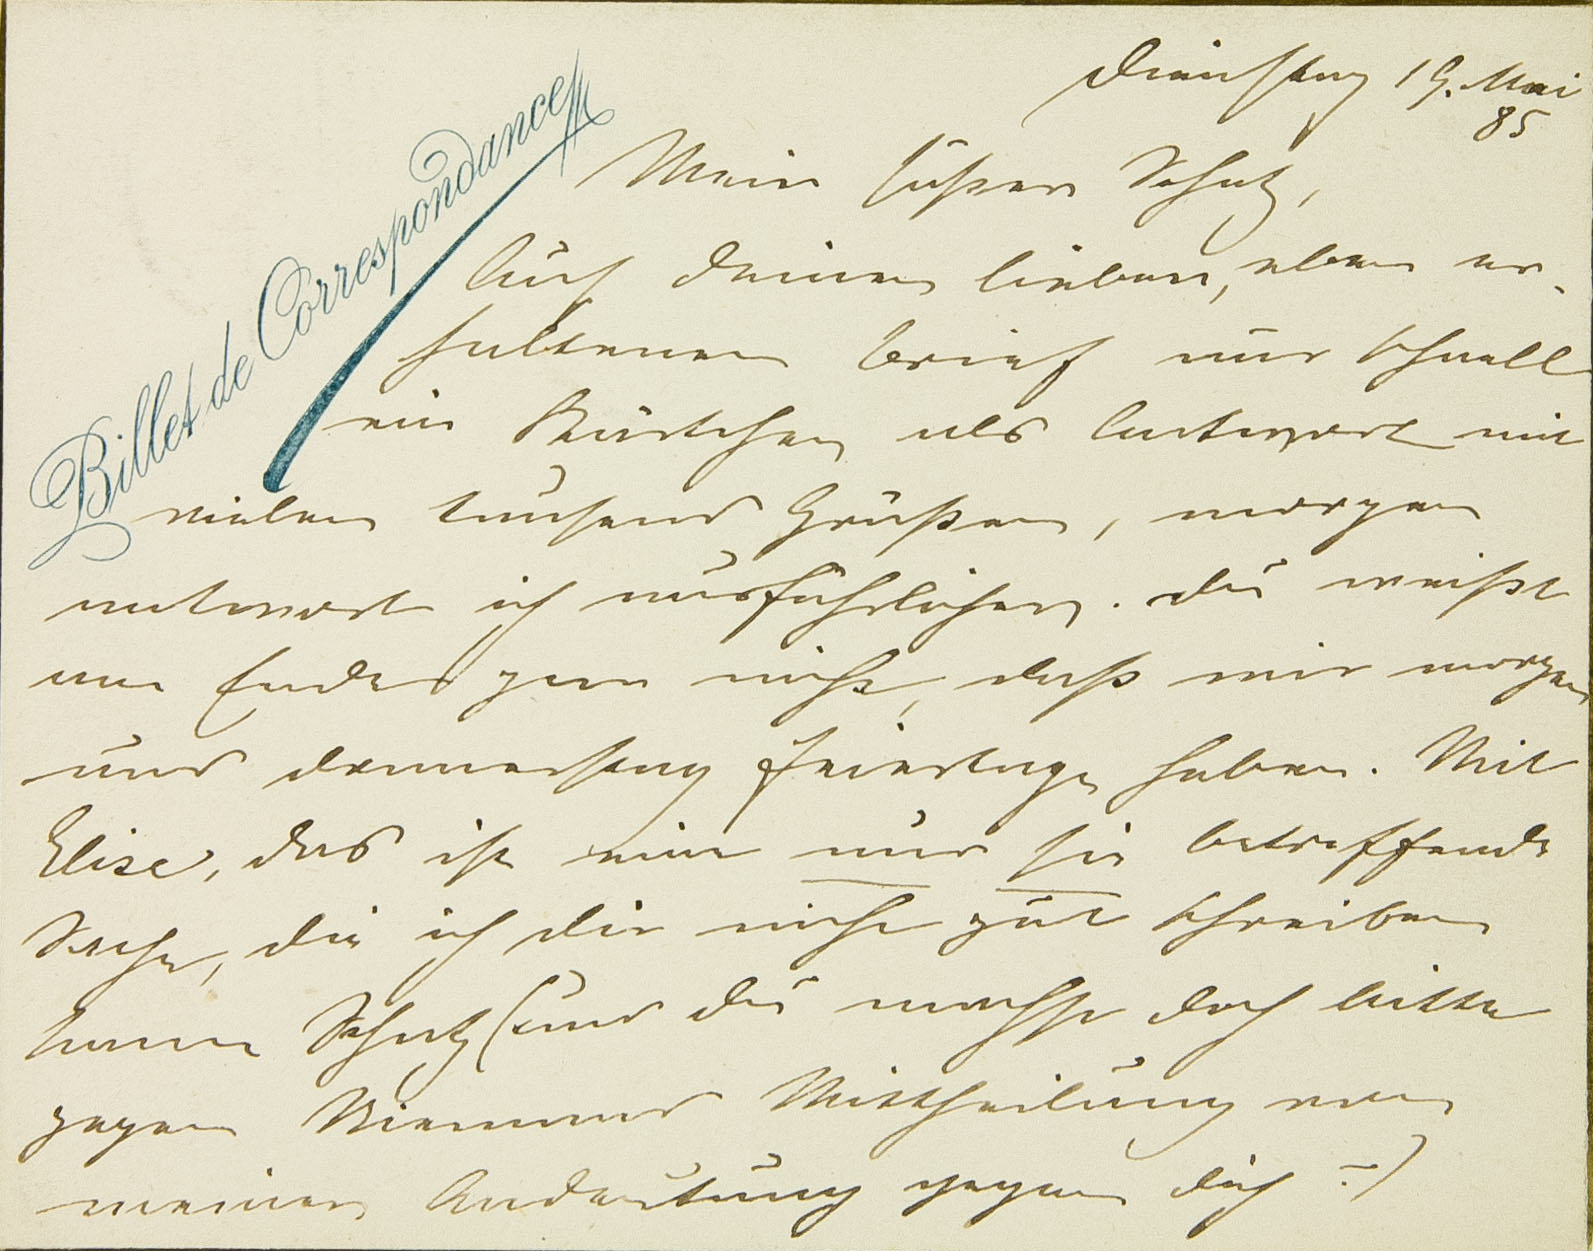 Dienstag 19. Mai
85
Billet de Correspondance
Mein süßer Schatz,
Auf deinen lieben, eben er-
haltenen Brief nur schnell
ein Kärtchen als Antwort mit
vielen tausend Grüßen, morgen
antwort ich ausführlicher. Du weißt
am Ende gar nicht, daß wir morgen
und Donnerstag Feiertage haben. Mit
Elise, das ist eine nur sie betreffende
Sache, die ich dir nicht gut schreiben
kann Schatz (und du machst doch bitte
gegen Niemand Mittheilung von
meiner Andeutung gegen dich –)